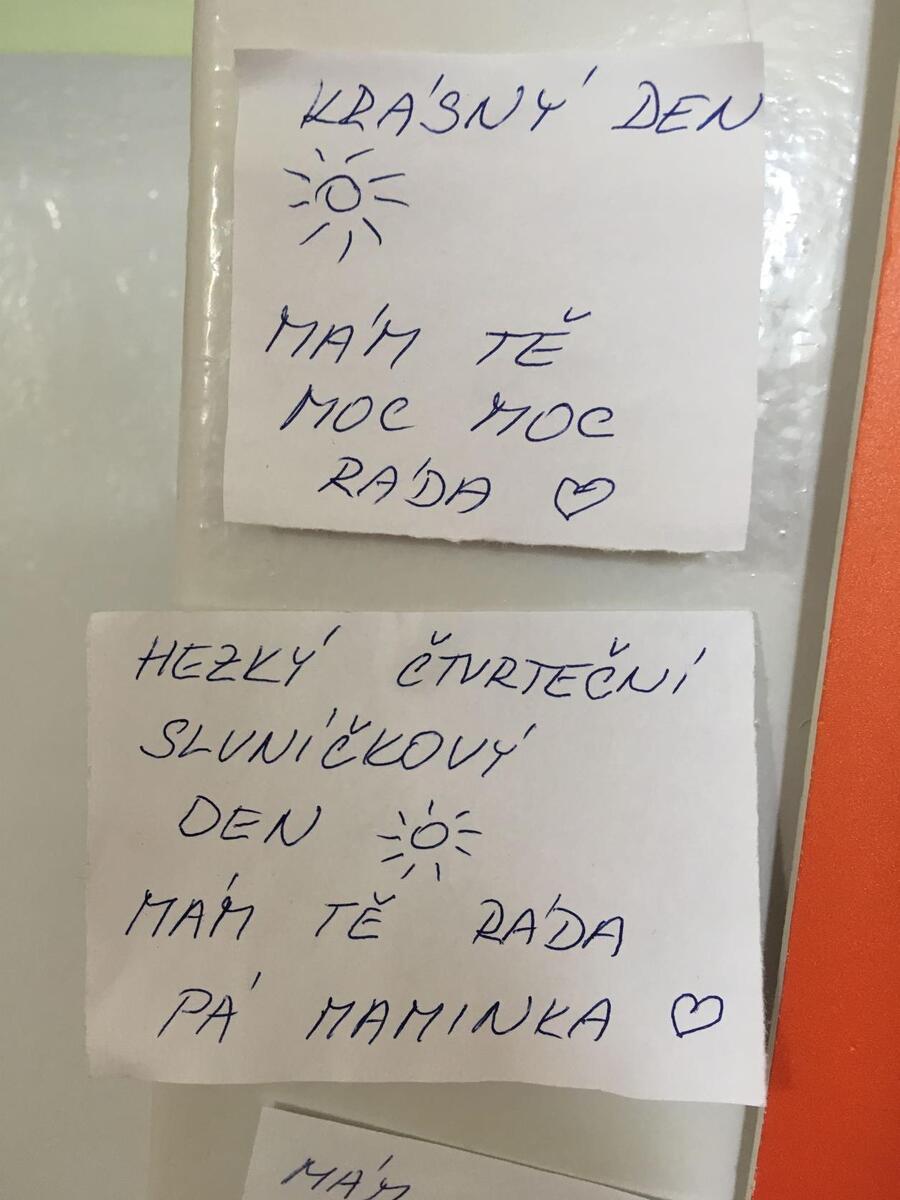 KRÁSNÝ DEN
MÁM TĚ
MOC MOC
RÁDA
HEZKÝ ČTVRTEČNÍ
SLUNÍČKOVÝ
DEN
MÁM TĚ RÁDA
PÁ MAMINKA
MÁM